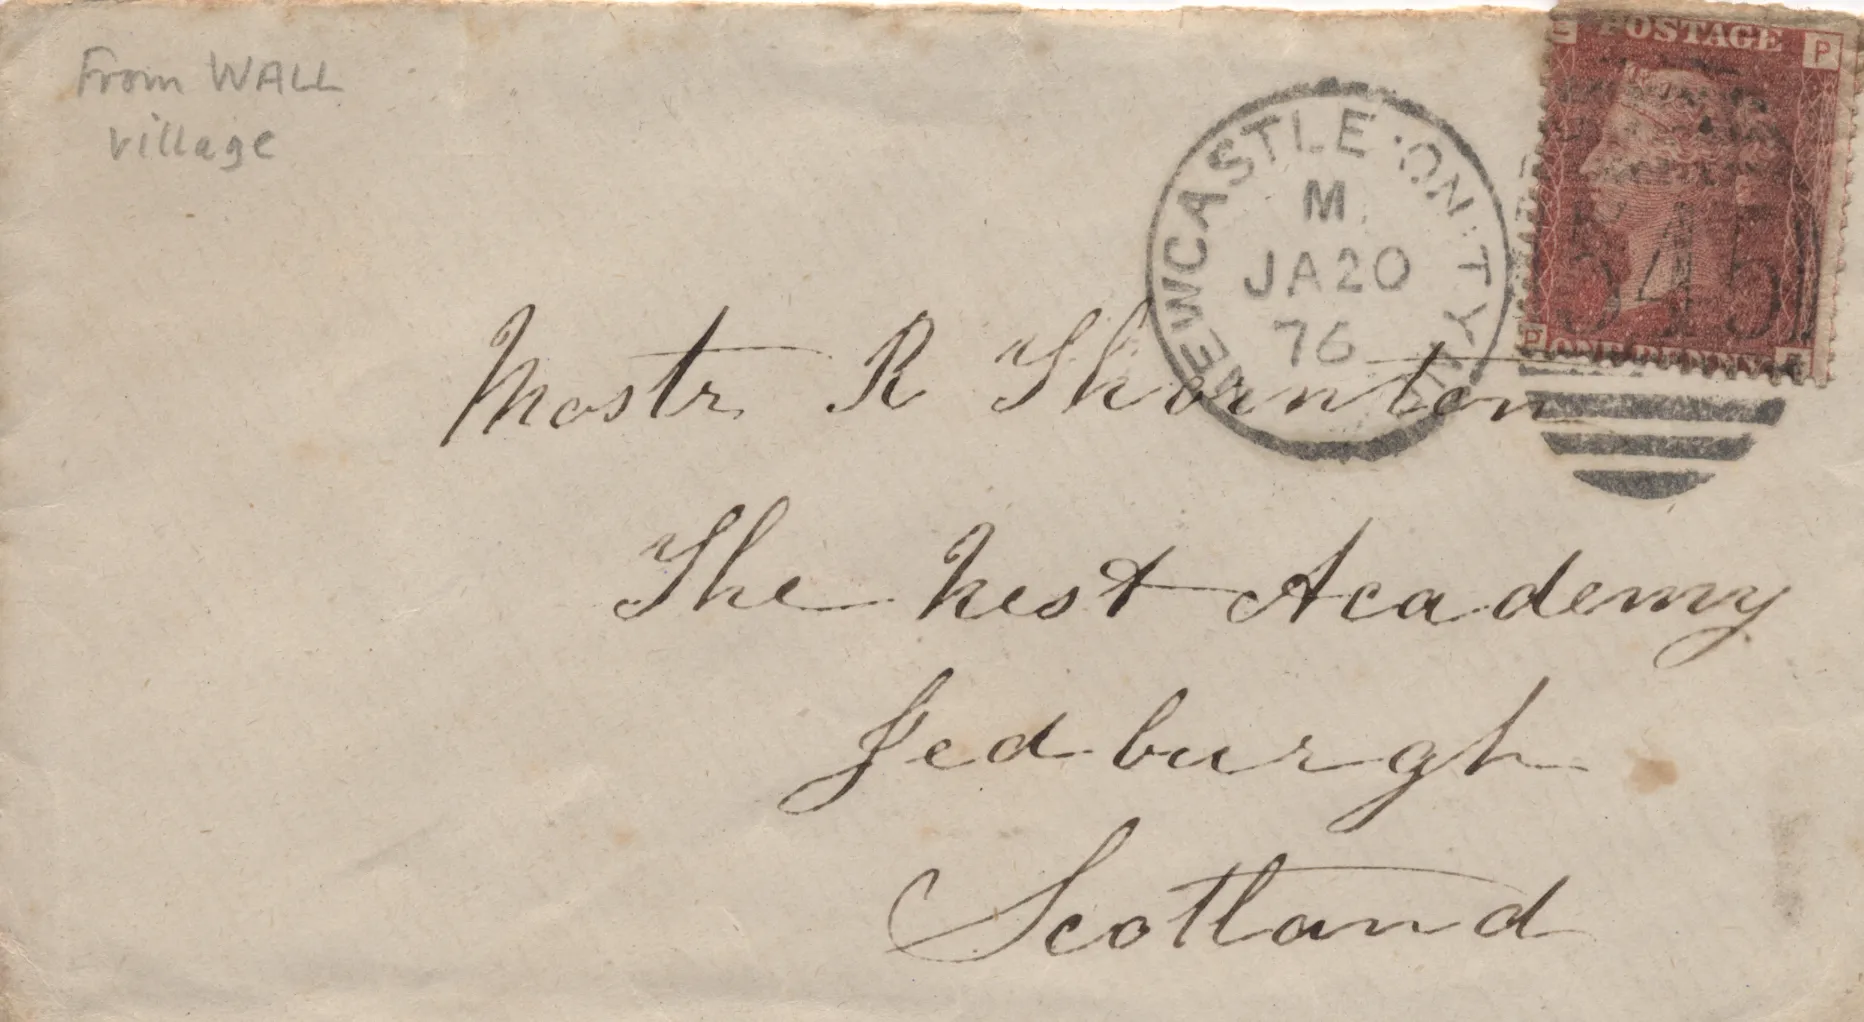 From WALL
village
POSTAGE
P
NEWCASTLE·ON·TYNE
M
JA20
76
545
P
ONE PENNY
Mastr R Thornton
The Nest Academy
Jedburgh
Scotland